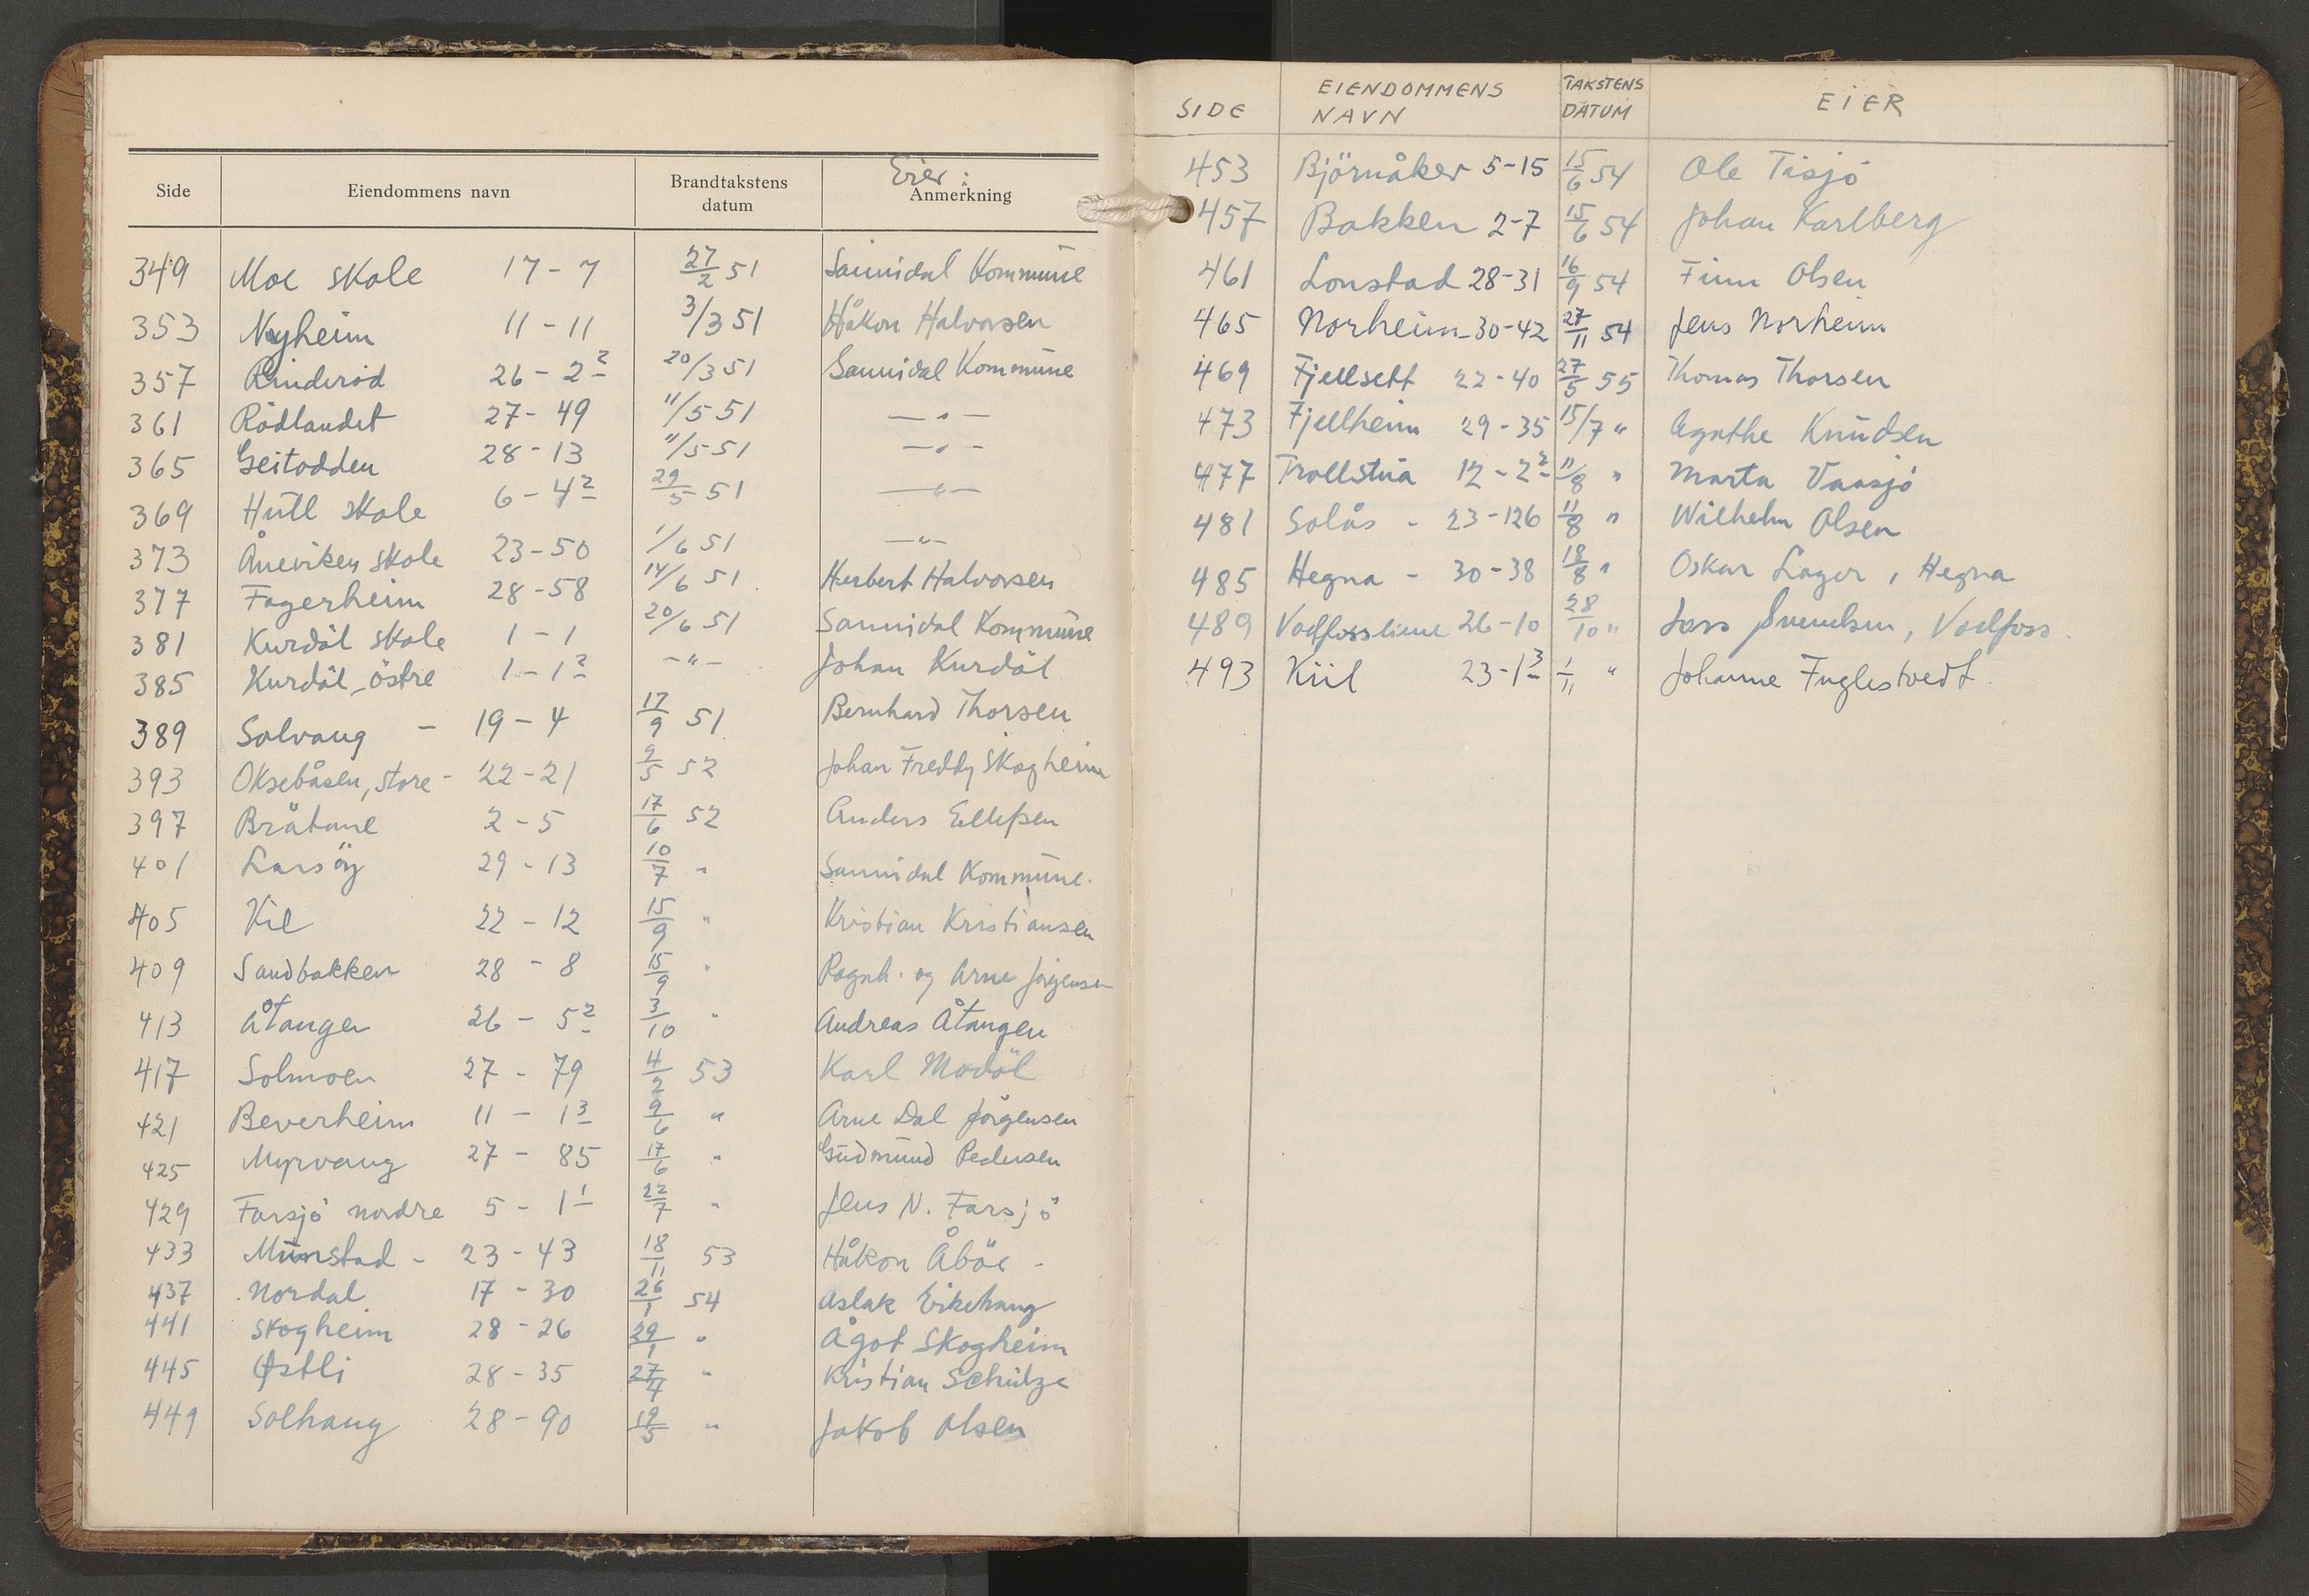 Side Eiendommens navn Brandtakstens datum Eier: Anmerkning
349 Moe skole 17-7 27/2 51 Sannidal Kommune
353 Nyheim 11-11 3/3 51 Håkon Halvorsen
357 Rinderød 26-2² 20/3 51 Sannidal Kommune
361 Rödlandet 27-49 11/5 51 —"—
365 Geitodden 28-13 11/5 51 —"—
369 Hull skole 6-4² 29/5 51 —"—
373 Åneviken skole 23-50 1/6 51 —"—
377 Fagerheim 28-58 14/6 51 Herbert Halvorsen
381 Kurdöl skole 1-1 20/6 51 Sannidal Kommune
385 Kurdöl, östre 1-1² —"— Johan Kurdöl
389 Solvang - 19-4 17/9 51 Bernhard Thorsen
393 Oksebåsen, store - 22-21 2/5 52 Johan Freddy Skogheim
397 Bråtane 2-5 17/6 52 Anders Ellefsen
401 Larsöy 29-13 10/7 " Sannidal Kommune.
405 Kil 22-12 15/9 " Kristian Kristiansen
409 Sandbakken 28-8 15/9 " Ragnh. og Arne Jörgensen
413 Åtangen 26-5² 3/10 " Andreas Åtangen
417 Solmoen 27-79 4/2 53 Karl Modöl
421 Beverheim 11-1³ 9/6 " Arne Dal Jörgensen
425 Myrvang 27-85 17/6 " Gudmund Pedersen
429 Farsjö nordre 5-1¹ 22/7 " Jens N. Farsjö
433 Munstad - 23-43 18/11 53 Håkon Åböe -
437 Nordal 17-30 26/1 54 Aslak Eikehaug
441 Skogheim 28-26 29/1 " Ågot Skogheim
445 Østli 28-35 27/4 " Kristian Schulze
449 Solhaug 28-90 19/5 " Jakob Olsen
SIDE EIENDOMMENS NAVN TAKSTENS DATUM EIER
453 Björnåker 5-15 15/6 54 Ole Tisjö
457 Bakken 2-7 15/6 54 Johan Karlberg
461 Lonstad 28-31 16/9 54 Finn Olsen
465 Norheim - 30-42 27/11 54 Jens Norheim
469 Fjellsett 22-40 27/5 55 Thomas Thorsen
473 Fjellheim 29-35 15/7 " Agathe Knudsen
477 Trollstua 12-2² 11/8 " Marta Vaasjö
481 Solås - 23-126 11/8 " Wilhelm Olsen
485 Hegna - 30-38 18/8 " Oskar Lager, Hegna
489 Vadfossliene 26-10 28/10 " Lars Svendsen, Vadfoss.
493 Kiil 23-1³ 1/11 " Johanne Fuglestvedt.